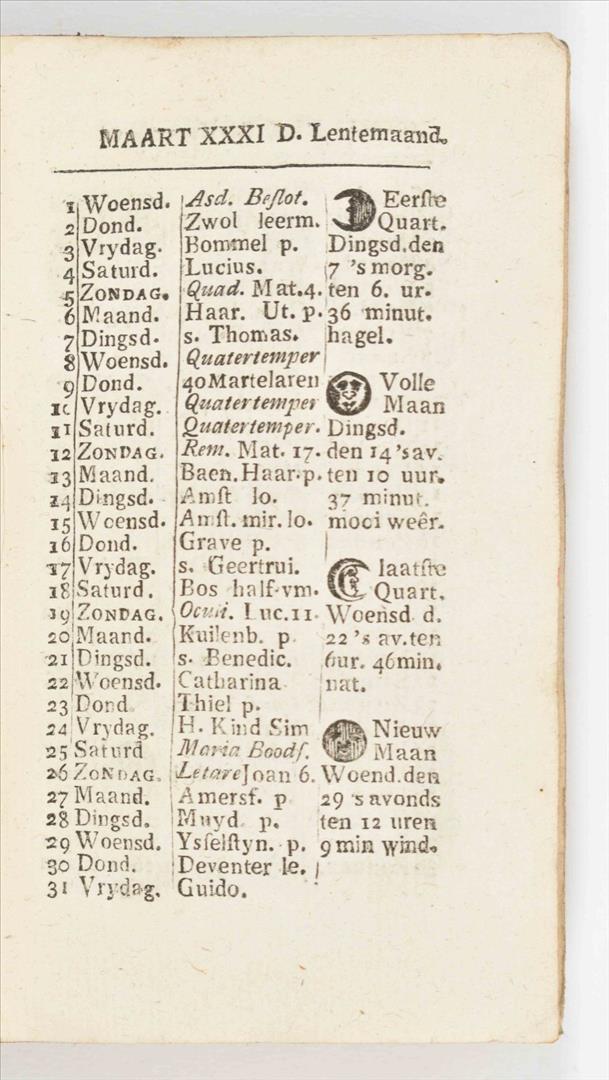 MAART XXXI D. Lentemaand.
1 Woensd. Asd. Beſlot. Eerſte
2 Dond. Zwol leerm. Quart.
3 Vrydag. Bommel p. Dingsd.den
4 Saturd. Lucius. 7 's morg.
5 ZONDAG. Quad. Mat.4. ten 6. ur.
6 Maand. Haar. Ut. p. 36 minut.
7 Dingsd. s. Thomas. hagel.
8 Woensd. Quatertemper
9 Dond. 40 Martelaren Volle
10 Vrydag. Quatertemper Maan
11 Saturd. Quatertemper. Dingsd.
12 ZONDAG. Rem. Mat. 17. den 14 's av.
13 Maand. Baen. Haar. p. ten 10 uur.
14 Dingsd. Amſt lo. 37 minut.
15 Woensd. Amſt. mir. lo. mooi weêr.
16 Dond. Grave p.
17 Vrydag. s. Geertrui. laatſte
18 Saturd. Bos half-vm. Quart.
19 ZONDAG. Oculi. Luc.11. Woensd d.
20 Maand. Kuilenb. p. 22 's av.ten
21 Dingsd. s. Benedic. 6ur. 46min.
22 Woensd. Catharina nat.
23 Dond Thiel p.
24 Vrydag. H. Kind Sim Nieuw
25 Saturd Maria Boodſ. Maan
26 ZONDAG. Letare Joan 6. Woend.den
27 Maand. Amersf. p 29 's avonds
28 Dingsd. Muyd p. ten 12 uren
29 Woensd. Ysſelſtyn. p. 9 min wind.
30 Dond. Deventer le.
31 Vrydag. Guido.